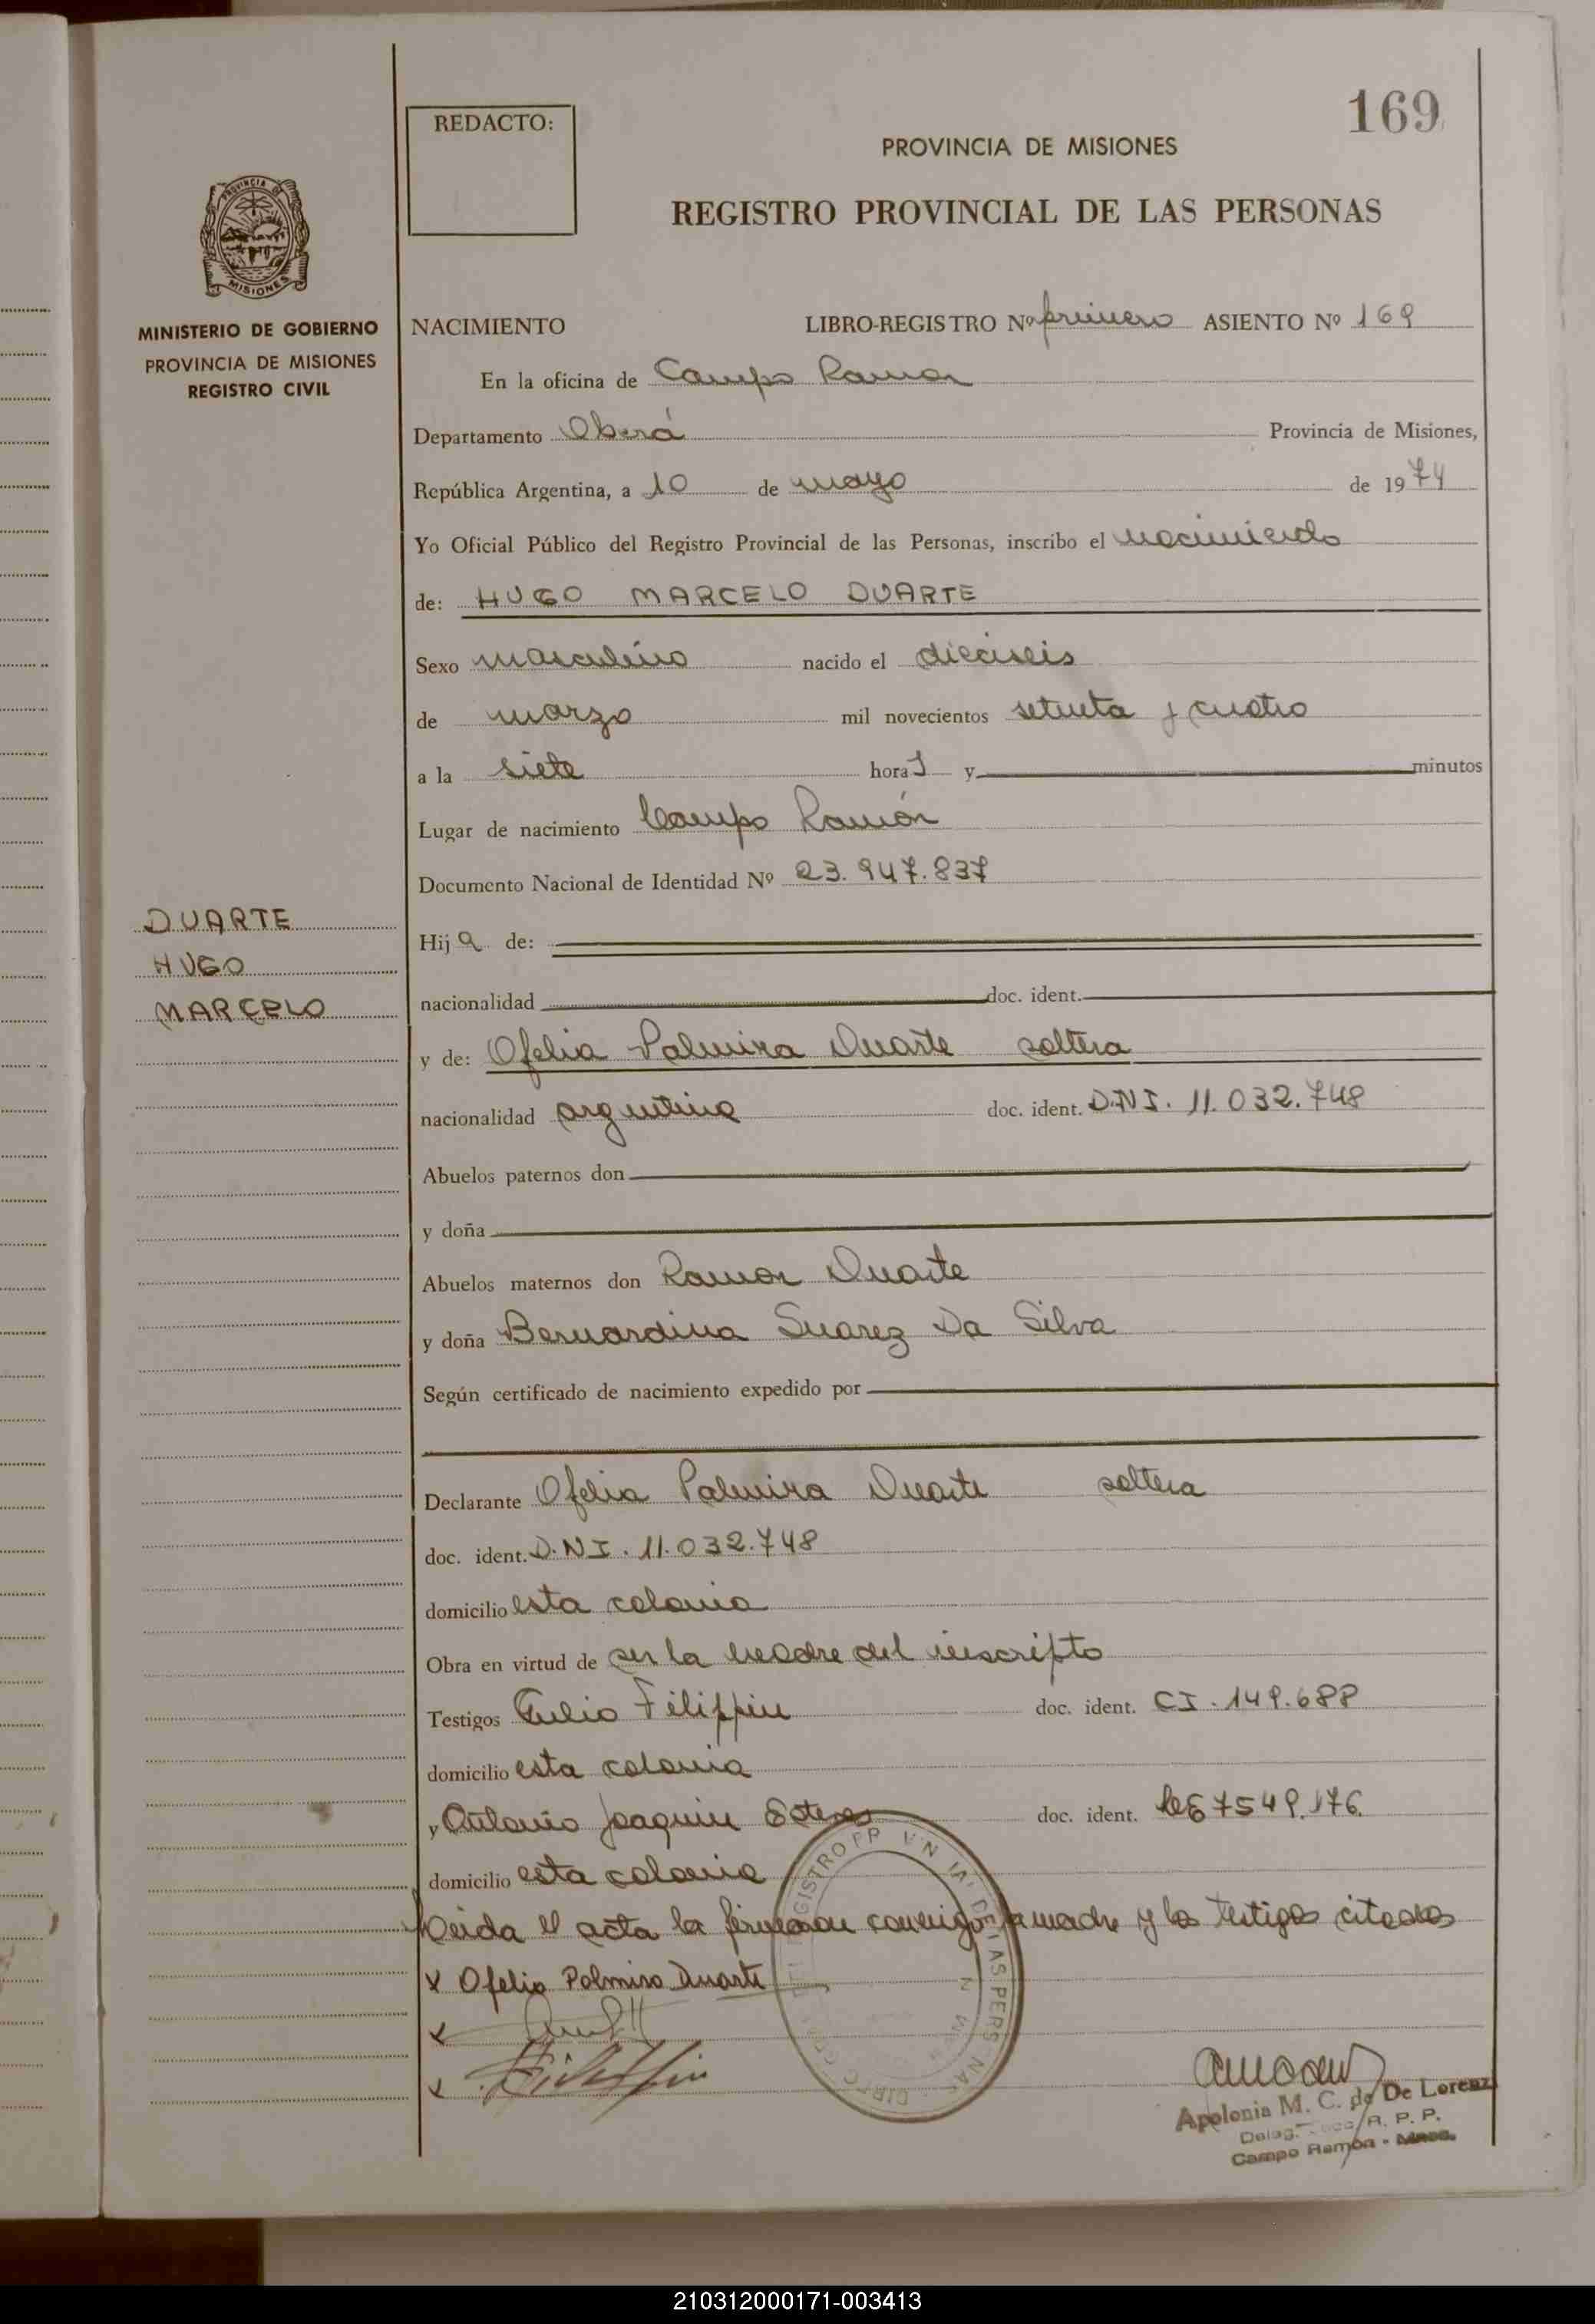 169
REDACTO:
PROVINCIA DE MISIONES
REGISTRO PROVINCIAL DE LAS PERSONAS
PROVINCIA DE MISIONES
MINISTERIO DE GOBIERNO
PROVINCIA DE MISIONES
REGISTRO CIVIL
NACIMIENTO LIBRO-REGISTRO Nº primero ASIENTO Nº 169
En la oficina de Campo Ramon
Departamento Oberá Provincia de Misiones,
República Argentina, a 10 de mayo de 1974
Yo Oficial Público del Registro Provincial de las Personas, inscribo el nacimiento
de: HUGO MARCELO DUARTE
Sexo masculino nacido el dieciseis
de marzo mil novecientos setenta y cuatro
a la siete horas y minutos
Lugar de nacimiento Campo Ramón
Documento Nacional de Identidad Nº 23.947.837
DUARTE
HUGO
MARCELO
Hijo de:
nacionalidad doc. ident.
y de: Ofelia Palmira Duarte soltera
nacionalidad argentina doc. ident. D.N.I. 11.032.748
Abuelos paternos don
y doña
Abuelos maternos don Ramon Duarte
y doña Bernardina Suarez Da Silva
Según certificado de nacimiento expedido por
Declarante Ofelia Palmira Duarte soltera
doc. ident. D.N.I. 11.032.748
domicilio esta colonia
Obra en virtud de ser la madre del inscripto
Testigos Tulio Filippin doc. ident. CI. 149.688
domicilio esta colonia
y Antonio Joaquin Esteves doc. ident. 7549.176
domicilio esta colonia
Leida el acta la firman conmigo la madre y los testigos citados
x Ofelia Palmira Duarte
x
x Filippin
Apolonia M. C. de De Lorenz
Deleg. R. P. P.
Campo Ramón - Mnes.
210312000171-003413